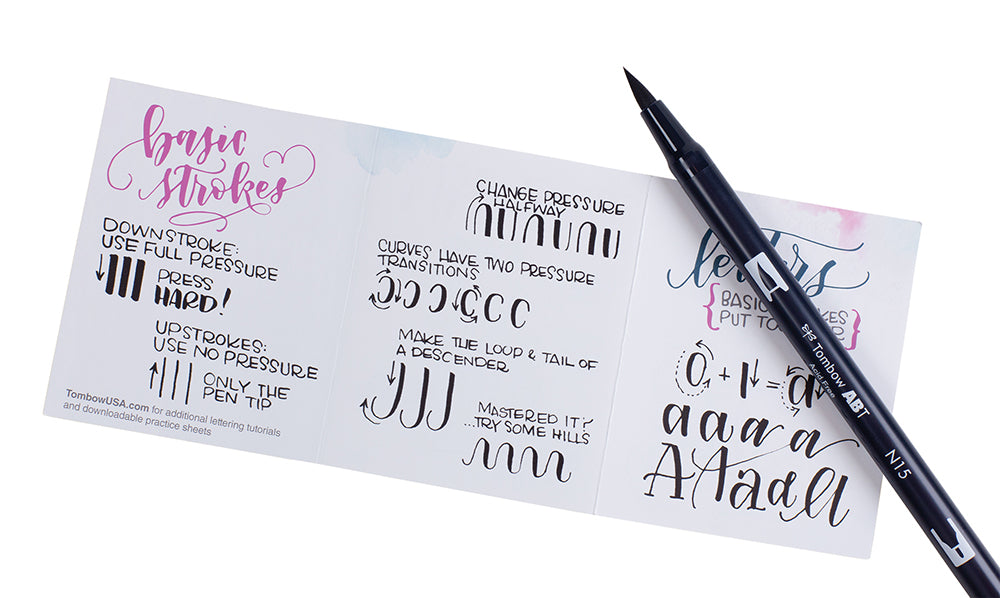 basic
strokes
DOWNSTROKE:
USE FULL PRESSURE
PRESS
HARD!
UPSTROKES:
USE NO PRESSURE
ONLY THE
PEN TIP
TombowUSA.com for additional lettering tutorials
and downloadable practice sheets
CHANGE PRESSURE
HALFWAY
CURVES HAVE TWO PRESSURE
TRANSITIONS
MAKE THE LOOP & TAIL OF
A DESCENDER
MASTERED IT?
...TRY SOME HILLS
letters
{BASIC
PUT }
+ = a
a a a a
A A a a d l l
Tombow ABT
Acid Free
N15